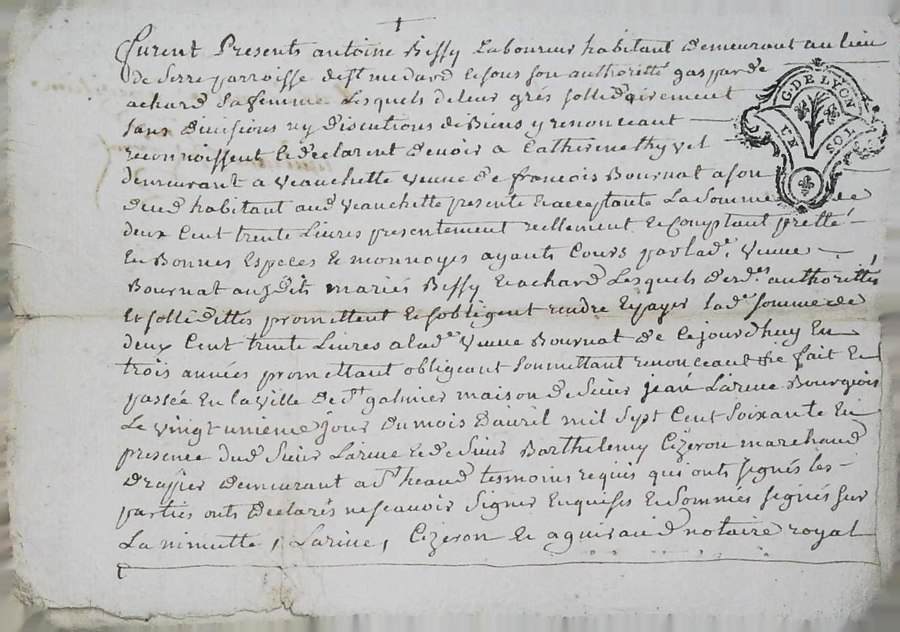 furent Presents antoine Biffy Laboureur habitant demeurant au lieu
de Serre parroisse de st medard et sous son authoritté gasparde
achard sa femme Lesquels de leur grés sollidairement
sans divisions ny discutions de Biens y renonceant
reconnoissent et déclarent devoir a Catherine thyvet
demeurant a Veauchette Veuve de francois Bournat a son
vivant habitant aud Veauchette presente et acceptante La somme de
deux Cent trente Livres presentement réellement et Comptant pretté
En Bonnes Especes et monnoyes ayants Cours par lade Veuve
Bournat auxdits mariés Biffy et achard Lesquels desdes authorittés
et sollidittés promettent et sobligent rendre et payer lade somme de
deux Cent trente Livres a lade Veuve Bournat de cejourdhuy En
trois années promettant obligeant soumettant renonceant fait et
passée En la ville de st galmier maison de sieur jean Larive Bourgeois
Le vingt unieme jour du mois davril mil sept Cent soixante En
presence dud sieur Larive et de sieur Barthelemy Cizeron marchand
drapier demeurant a st heand tesmoins requis qui onts signés les
parties onts déclarés ne scavoir signer Enquises et sommés signés sur
La minutte, Larive, Cizeron et aguiraud notaire royal
G. DE LYON
UN SOL